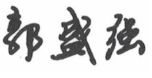 郭盛强